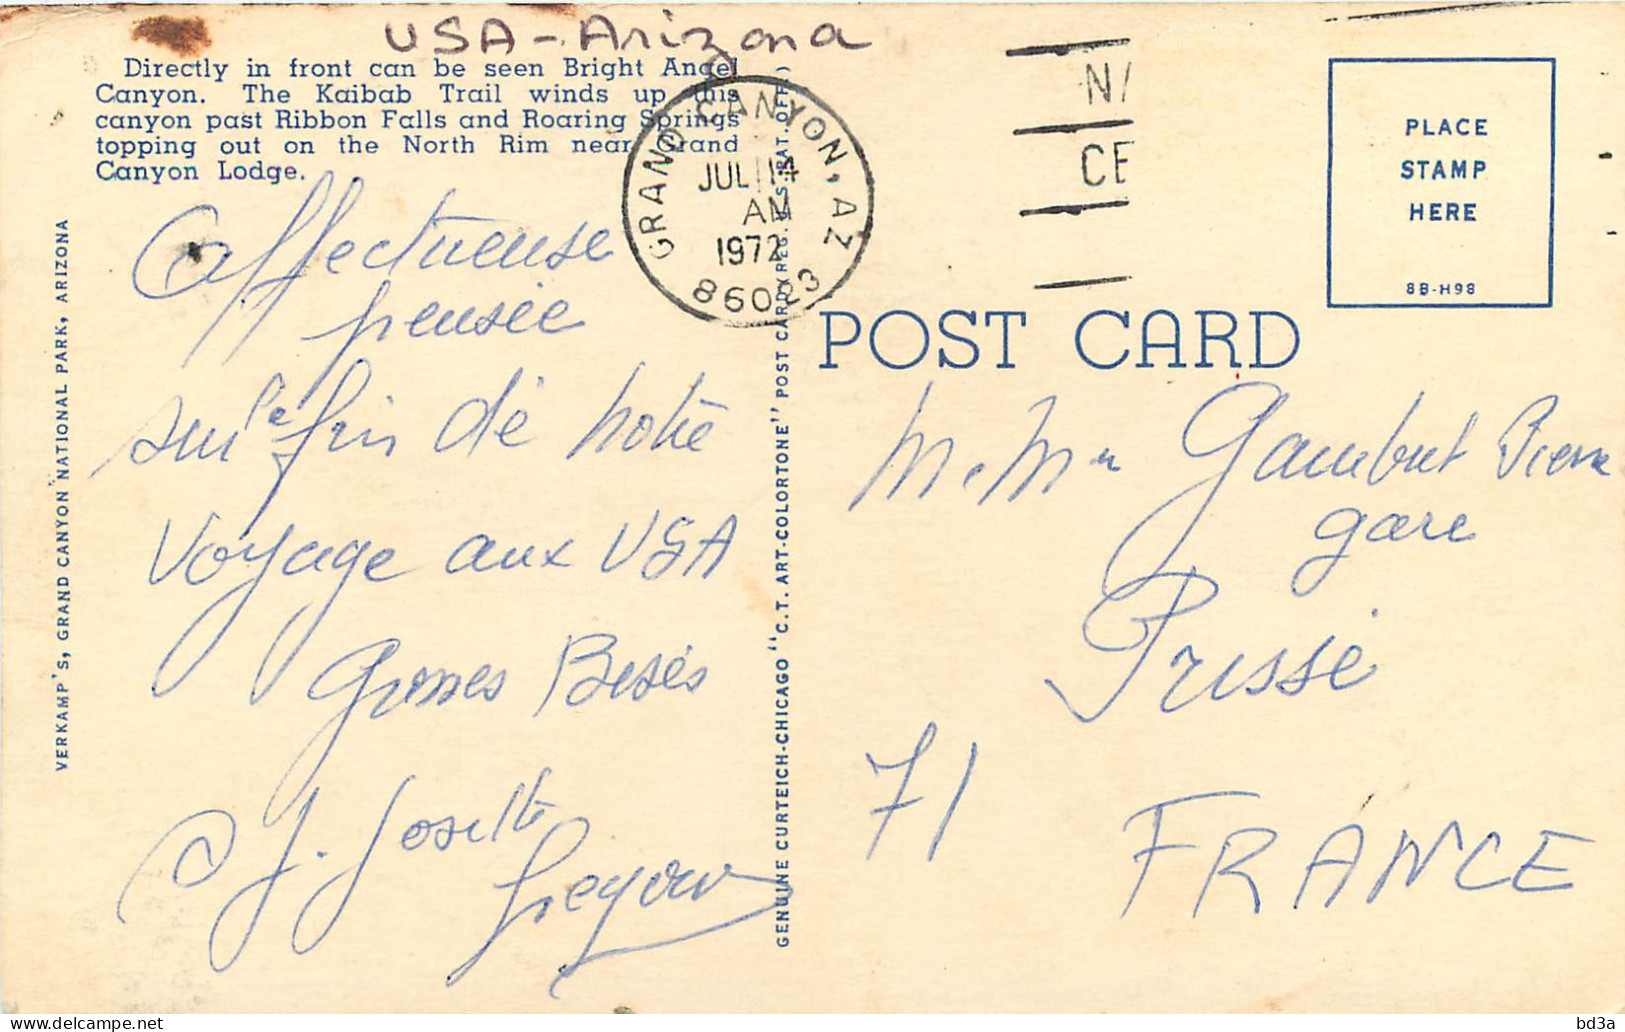 USA - Arizona
Directly in front can be seen Bright Angel
Canyon. The Kaibab Trail winds up this
canyon past Ribbon Falls and Roaring Springs
topping out on the North Rim near Grand
Canyon Lodge.
GRAND CANYON, AZ
JUL 14
AM
1972
86023
PLACE
STAMP
HERE
8B-H98
POST CARD
VERKAMP'S, GRAND CANYON NATIONAL PARK, ARIZONA
GENUINE CURTEICH-CHICAGO "C.T. ART-COLORTONE" POST CARD (REG. U.S. PAT. OFF.)
Affectueuse
pensée
sur la fin de notre
voyage aux USA
Grosses Besés
J. Josette
M. Mme Gambut Pierre
gare
Prissé
71
FRANCE
bd3a